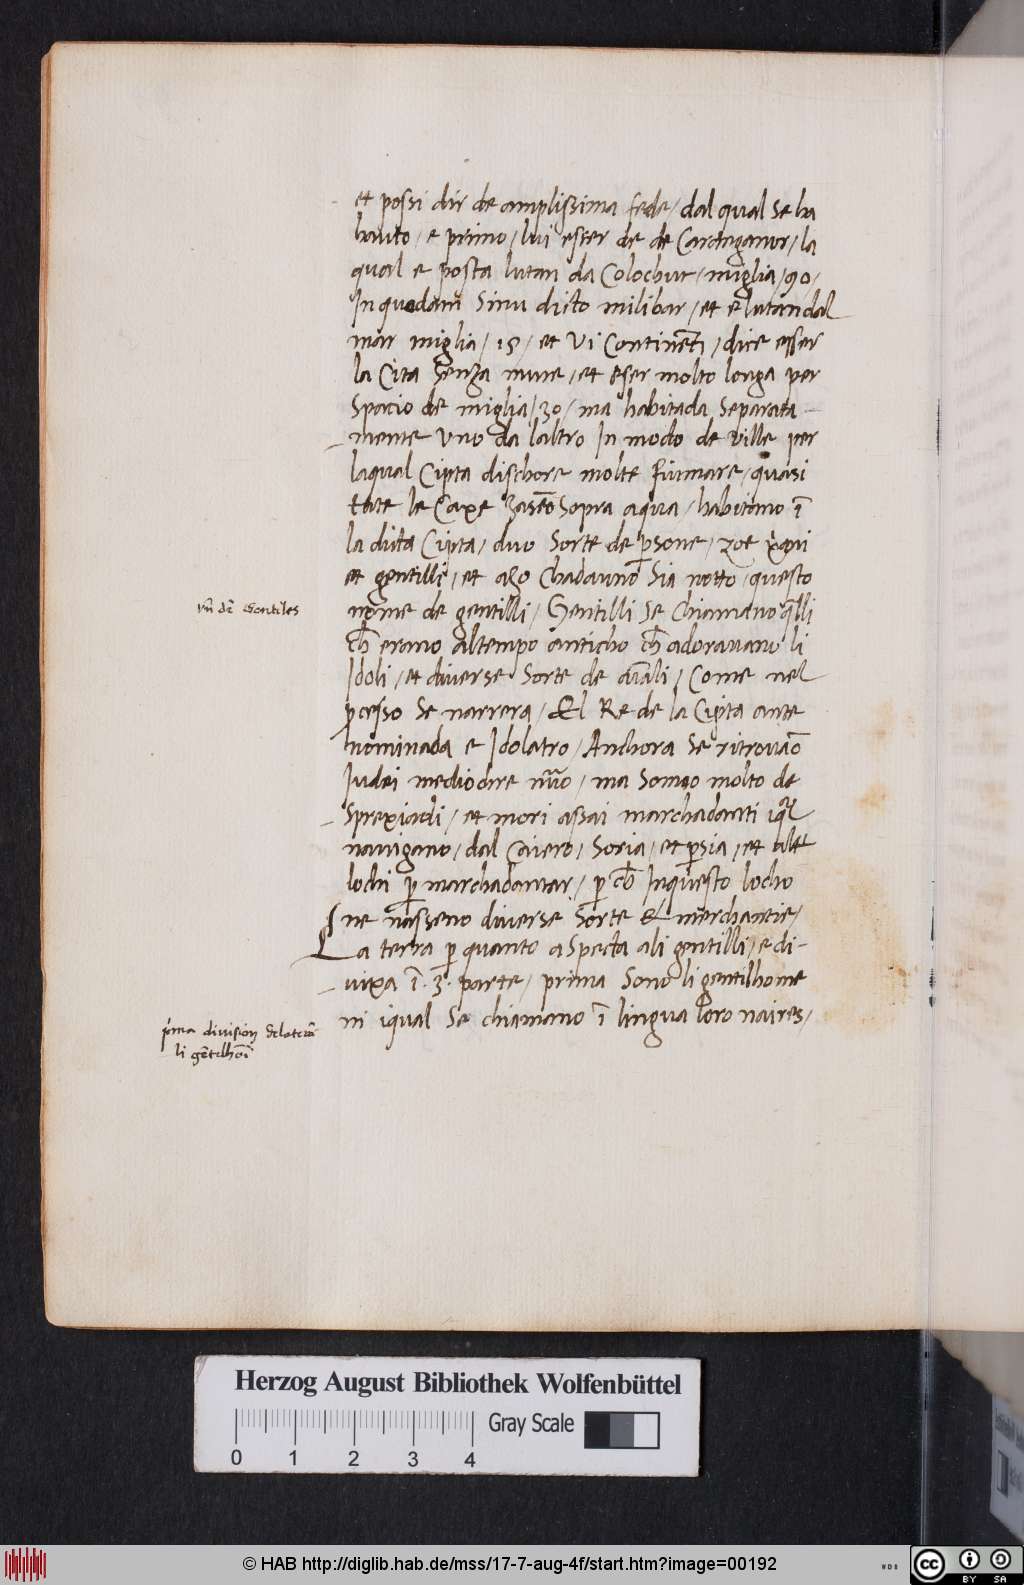 et possi dir de amplissima fede / dal qual se ha
hauto / e primo / lui esser de de Caranganur / la
qual e posta lutan da Colochut / miglia / 90 /
In quodam sinu dicto milibar / et e lutan dal
mar miglia / 15 / et Vi Continẽti / dice esser
la Cita senza mure / et eser molto longa per
Spacio de miglia / 30 / ma habitada separata
mente Uno da laltro In modo de ville per
laqual Cipta dischore molte fiumare / quasi
tute le Caxe sopra aqua / habitano ĩ
la dicta Cipta / duo Sorte de ꝑsone / zoe xp̃ni
et gentilli / et aзo Chadauno Sia notto / questo
nome de gentilli / Gentilli se Chiamano q̃lli
ch̃ erano al tempo anticho ch̃ adoravano li
Idoli / et diverse Sorte de aĩali / Come nel
ꝓcesso Se narrera / El Re de la Cipta ante
nominada e Idolatro / Anchora se ritrouão
Iudei mediocre nũo / ma Sonno molto de
sprexiadi / et mori assai marchadanti iq̃l
navigano / dal Caiero / Soria / et ꝑsia / et alt̃
lochi ꝑ marchadantar / ꝑ ch̃ Inquesto locho
ne nasseno diverse Sorte de merchantie /
La terra ꝑ quanto aspecta ali gentilli / e di-
vixa ĩ .3. parte / prima Sono li gentilhome
ni iqual Se chiamano ĩ lingua loro naires /
vñ dr̃ Gentiles
prima division dela terã
li gẽtilhoĩ
Herzog August Bibliothek Wolfenbüttel
Gray Scale
0 1 2 3 4
© HAB http://diglib.hab.de/mss/17-7-aug-4f/start.htm?image=00192
WDB
cc BY SA